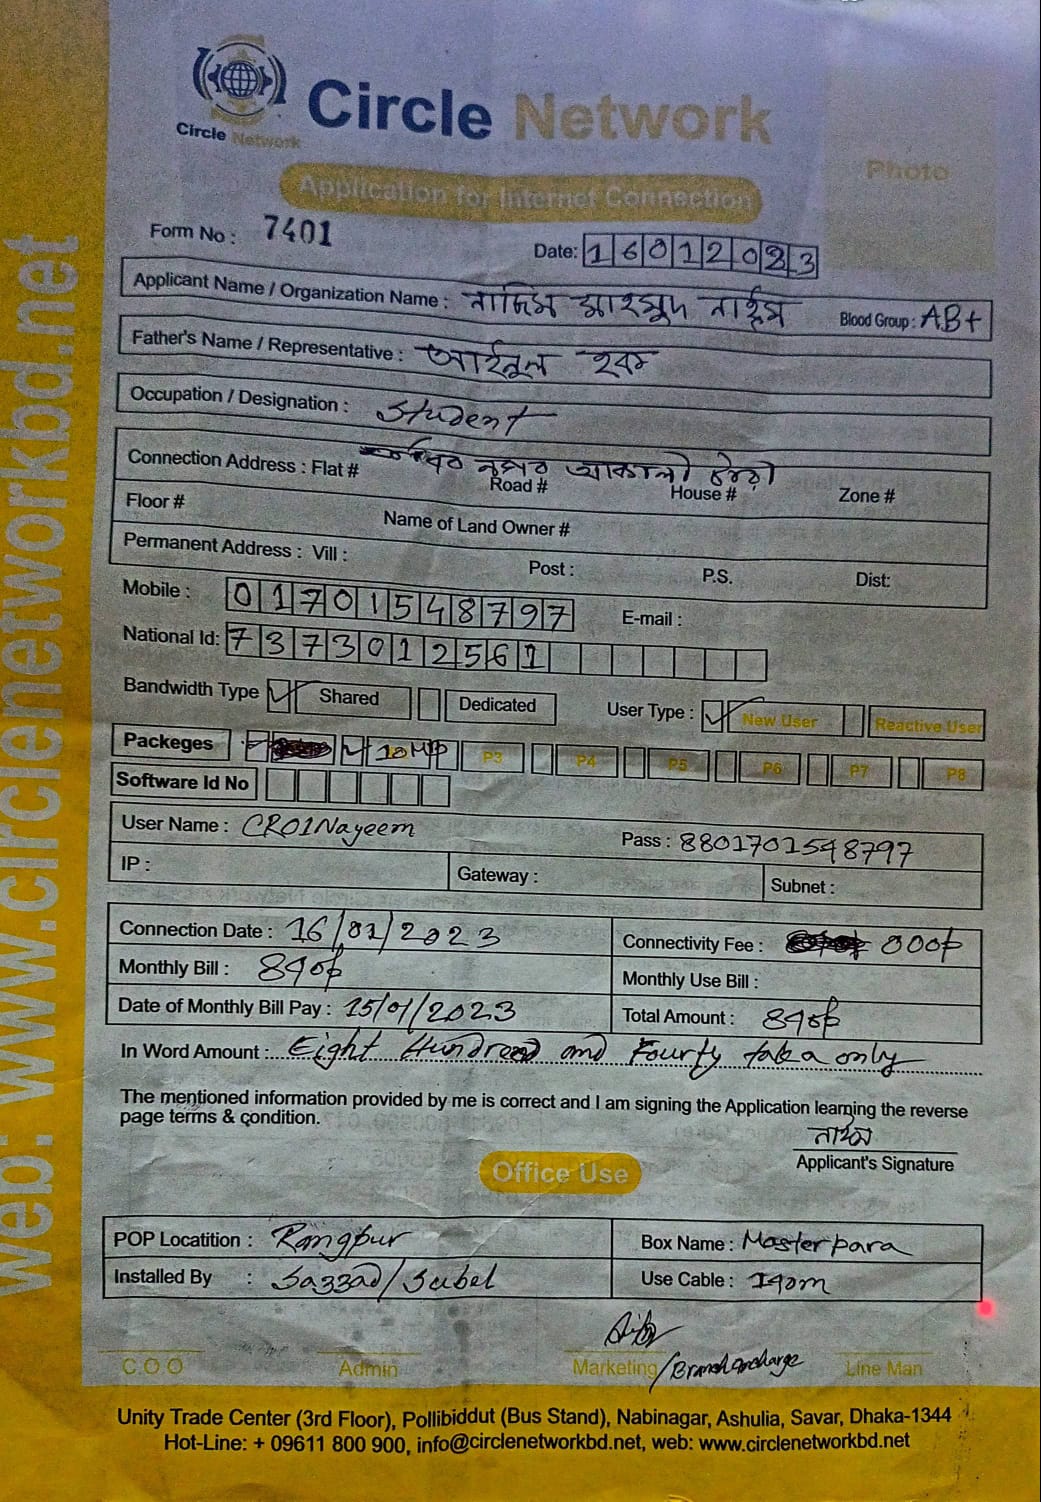 Circle Network
Circle Network
Application for Internet Connection
Photo
Form No : 7401
Date: 16012023
Applicant Name / Organization Name : নাজিম মাহমুদ নাঈম
Blood Group : AB+
Father's Name / Representative : আইনুল হক
Occupation / Designation : Student
Connection Address : Flat # Road # House # Zone #
Floor # Name of Land Owner #
Permanent Address : Vill : Post : P.S. Dist:
Mobile : 01701548797 E-mail :
National Id: 7373012561
Bandwidth Type Shared Dedicated User Type : New User Reactive User
Packeges P3 P4 P5 P6 P7 P8
Software Id No
User Name : CR01Nayeem Pass : 8801701548797
IP : Gateway : Subnet :
Connection Date : 16/01/2023 Connectivity Fee : 000৳
Monthly Bill : 840৳ Monthly Use Bill :
Date of Monthly Bill Pay : 15/01/2023 Total Amount : 840৳
In Word Amount : Eight Hundreed and Fourty taka only
The mentioned information provided by me is correct and I am signing the Application learning the reverse
page terms & condition.
নাঈম
Applicant's Signature
Office Use
POP Locatition : Rangpur Box Name : Masterpara
Installed By : Sazzad/Subel Use Cable : 140m
C O O Admin Marketing Line Man
Unity Trade Center (3rd Floor), Pollibiddut (Bus Stand), Nabinagar, Ashulia, Savar, Dhaka-1344
Hot-Line: + 09611 800 900, info@circlenetworkbd.net, web: www.circlenetworkbd.net
web: www.circlenetworkbd.net